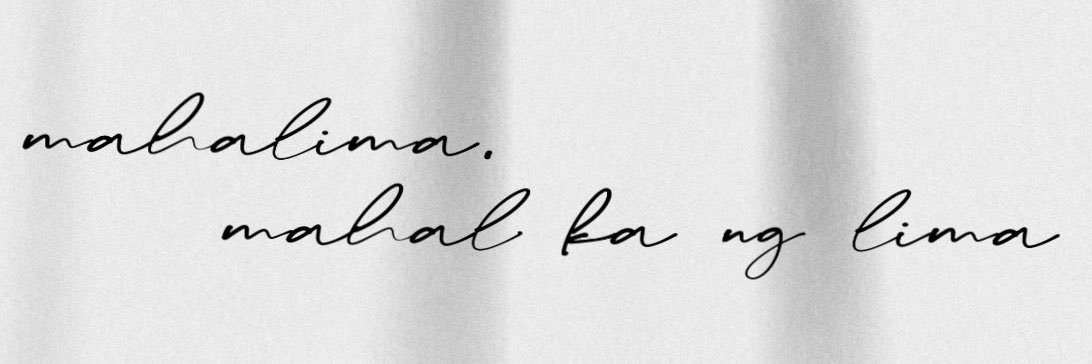 mahalima.
mahal ka ng lima